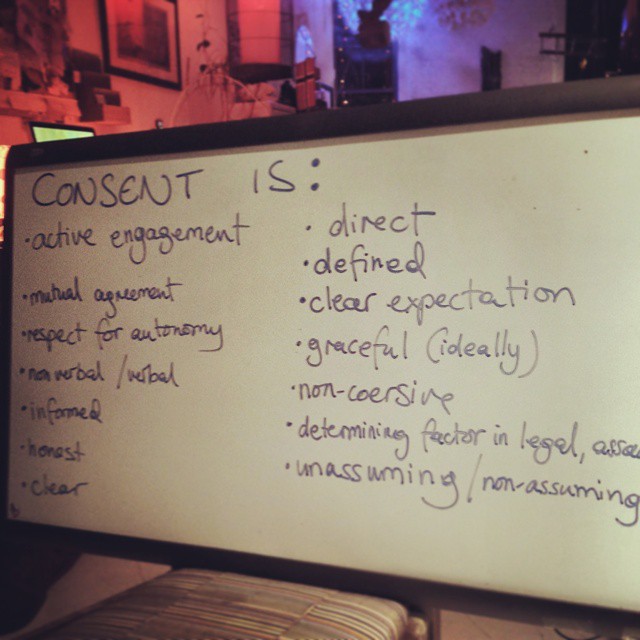 CONSENT IS:
· active engagement
· mutual agreement
· respect for autonomy
· non verbal / verbal
· informed
· honest
· clear
· direct
· defined
· clear expectation
· graceful (ideally)
· non-coersive
· determining factor in legal,
· unassuming / non-assuming